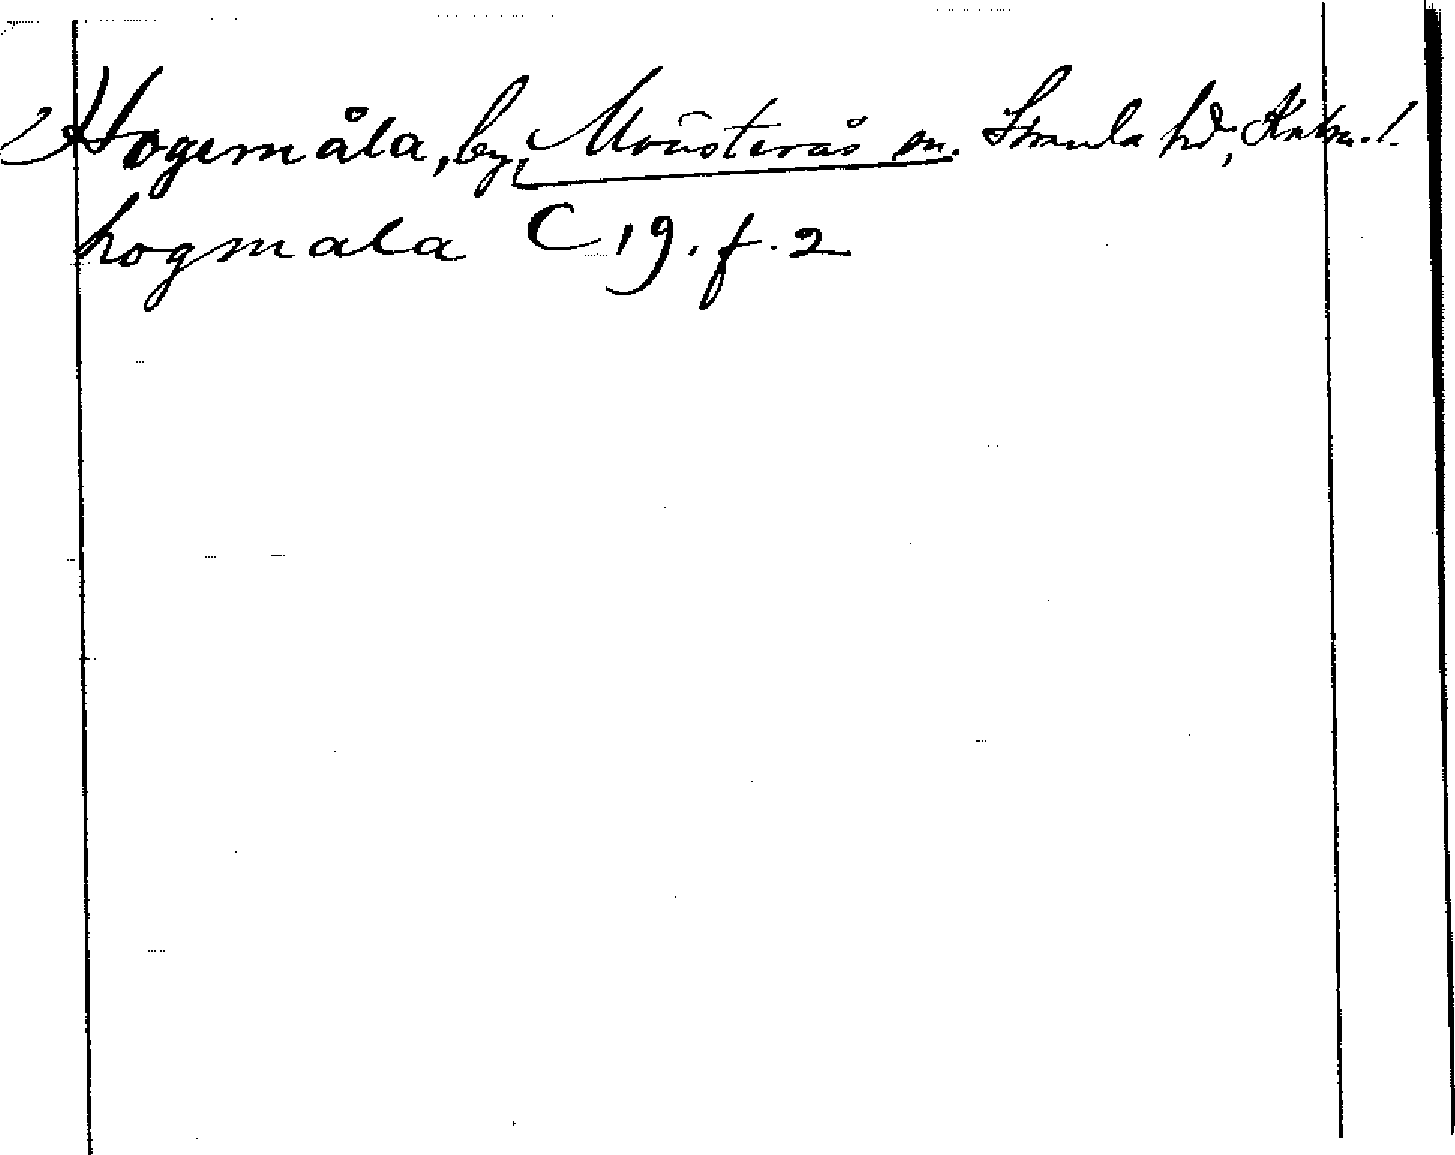 Hogemåla, by, Mönsterås sn. Stranda hd, Kalm. l.
hogmala C 19. f. 2